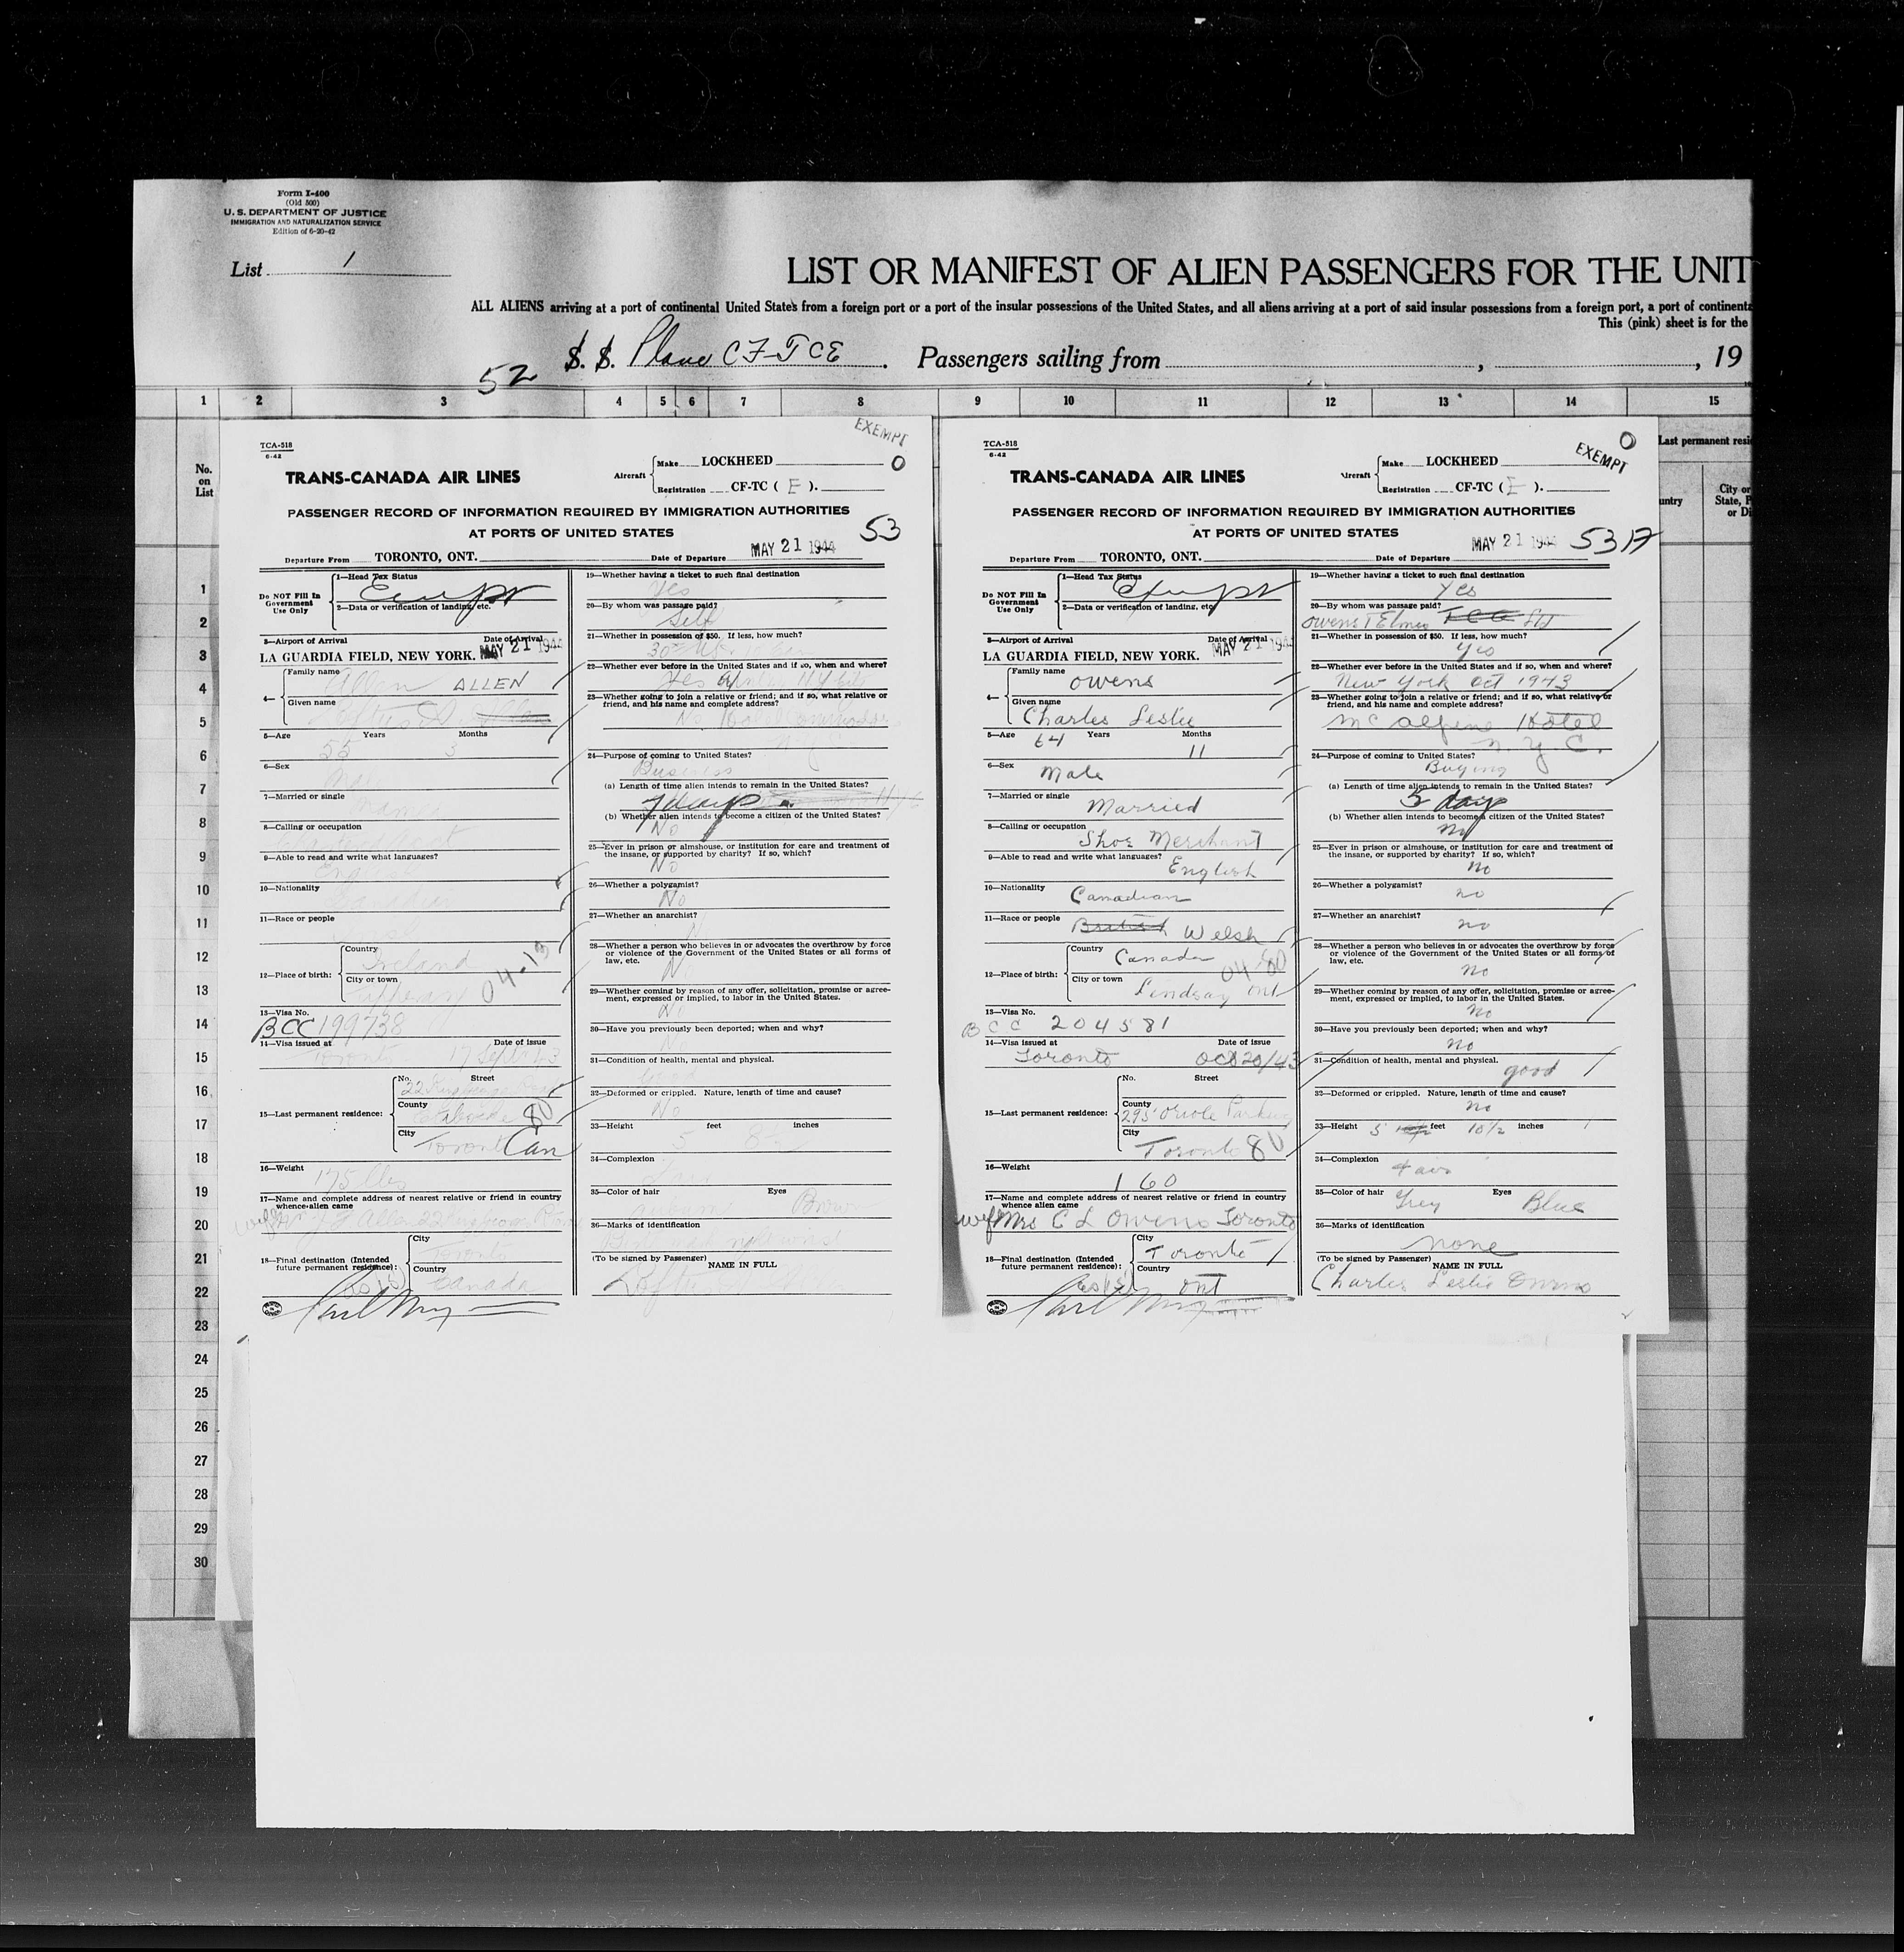 Form I-400
(Old 500)
U. S. DEPARTMENT OF JUSTICE
IMMIGRATION AND NATURALIZATION SERVICE
Edition of 6-20-42
List 1
LIST OR MANIFEST OF ALIEN PASSENGERS FOR THE UNIT
ALL ALIENS arriving at a port of continental United States from a foreign port or a port of the insular possessions of the United States, and all aliens arriving at a port of said insular possessions from a foreign port, a port of continenta
This (pink) sheet is for the
52 S. S. Plane CF-TCE . Passengers sailing from , , 19
1 2 3 4 5 6 7 8 9 10 11 12 13 14 15
No.
on
List
1
2
3
4
5
6
7
8
9
10
11
12
13
14
15
16
17
18
19
20
21
22
23
24
25
26
27
28
29
30
TCA-518
6-42
EXEMPT
0
TRANS-CANADA AIR LINES
Aircraft
Make LOCKHEED
Registration CF-TC ( E ).
PASSENGER RECORD OF INFORMATION REQUIRED BY IMMIGRATION AUTHORITIES
AT PORTS OF UNITED STATES
53
Departure From TORONTO, ONT. Date of Departure MAY 21 1944
Do NOT Fill In
Government
Use Only
1—Head Tax Status
Exempt
2—Data or verification of landing, etc.
3—Airport of Arrival Date of Arrival
LA GUARDIA FIELD, NEW YORK. MAY 21 1944
4—
Family name
Allen ALLEN
Given name
5—Age 55 Years 3 Months
6—Sex
7—Married or single
8—Calling or occupation
9—Able to read and write what languages?
English
10—Nationality
11—Race or people
12—Place of birth:
Country
Ireland
City or town
Tipperary
04-19
13—Visa No.
BCC 199738
14—Visa issued at Date of issue
Toronto 17 Sept 43
15—Last permanent residence:
No. Street
22
County
Etobicoke 80
City
Toronto Can
16—Weight
175 lbs
17—Name and complete address of nearest relative or friend in country
whence alien came
wife Allen 22
18—Final destination (Intended
future permanent residence):
City
Toronto
Country
Canada
19—Whether having a ticket to such final destination
Yes
20—By whom was passage paid?
Self
21—Whether in possession of $50. If less, how much?
22—Whether ever before in the United States and if so, when and where?
Yes
23—Whether going to join a relative or friend; and if so, what relative or
friend, and his name and complete address?
No
24—Purpose of coming to United States?
Business
(a) Length of time alien intends to remain in the United States?
7 days
(b) Whether alien intends to become a citizen of the United States?
No
25—Ever in prison or almshouse, or institution for care and treatment of
the insane, or supported by charity? If so, which?
No
26—Whether a polygamist?
No
27—Whether an anarchist?
28—Whether a person who believes in or advocates the overthrow by force
or violence of the Government of the United States or all forms of
law, etc.
No
29—Whether coming by reason of any offer, solicitation, promise or agree-
ment, expressed or implied, to labor in the United States.
No
30—Have you previously been deported; when and why?
No
31—Condition of health, mental and physical.
Good
32—Deformed or crippled. Nature, length of time and cause?
No
33—Height 5 feet 8½ inches
34—Complexion
35—Color of hair Eyes
Auburn Brown
36—Marks of identification
(To be signed by Passenger) NAME IN FULL
TCA-518
6-42
EXEMPT
0
TRANS-CANADA AIR LINES
Aircraft
Make LOCKHEED
Registration CF-TC ( E ).
PASSENGER RECORD OF INFORMATION REQUIRED BY IMMIGRATION AUTHORITIES
AT PORTS OF UNITED STATES
5317
Departure From TORONTO, ONT. Date of Departure MAY 21 1944
Do NOT Fill In
Government
Use Only
1—Head Tax Status
Exempt
2—Data or verification of landing, etc.
3—Airport of Arrival Date of Arrival
LA GUARDIA FIELD, NEW YORK. MAY 21 1944
4—
Family name
Owens
Given name
Charles Leslie
5—Age 64 Years 11 Months
6—Sex
Male
7—Married or single
Married
8—Calling or occupation
Shoe Merchant
9—Able to read and write what languages?
English
10—Nationality
Canadian
11—Race or people
British Welsh
12—Place of birth:
Country
Canada
City or town
Lindsay Ont
04-80
13—Visa No.
BCC 204581
14—Visa issued at Date of issue
Toronto Oct 20/43
15—Last permanent residence:
No. Street
County
295 Oriole Parkway
City
Toronto 80
16—Weight
160
17—Name and complete address of nearest relative or friend in country
whence alien came
wife Mrs C L Owens Toronto
18—Final destination (Intended
future permanent residence):
City
Toronto
Country
Ont
19—Whether having a ticket to such final destination
Yes
20—By whom was passage paid?
Owens & Elmes Ltd
21—Whether in possession of $50. If less, how much?
Yes
22—Whether ever before in the United States and if so, when and where?
New York Oct 1943
23—Whether going to join a relative or friend; and if so, what relative or
friend, and his name and complete address?
McAlpine Hotel
N.Y.C.
24—Purpose of coming to United States?
Buying
(a) Length of time alien intends to remain in the United States?
5 days
(b) Whether alien intends to become a citizen of the United States?
No
25—Ever in prison or almshouse, or institution for care and treatment of
the insane, or supported by charity? If so, which?
No
26—Whether a polygamist?
no
27—Whether an anarchist?
no
28—Whether a person who believes in or advocates the overthrow by force
or violence of the Government of the United States or all forms of
law, etc.
No
29—Whether coming by reason of any offer, solicitation, promise or agree-
ment, expressed or implied, to labor in the United States.
No
30—Have you previously been deported; when and why?
No
31—Condition of health, mental and physical.
good
32—Deformed or crippled. Nature, length of time and cause?
No
33—Height 5 feet 10½ inches
34—Complexion
Fair
35—Color of hair Eyes
Grey Blue
36—Marks of identification
none
(To be signed by Passenger) NAME IN FULL
Charles Leslie Owens
Last permanent resi
untry
City or
State, P
or Di